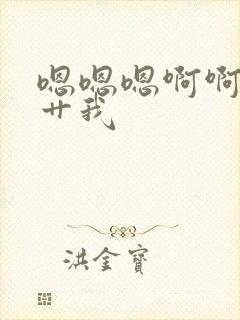 嗯嗯嗯啊啊
艹我
洪金寶